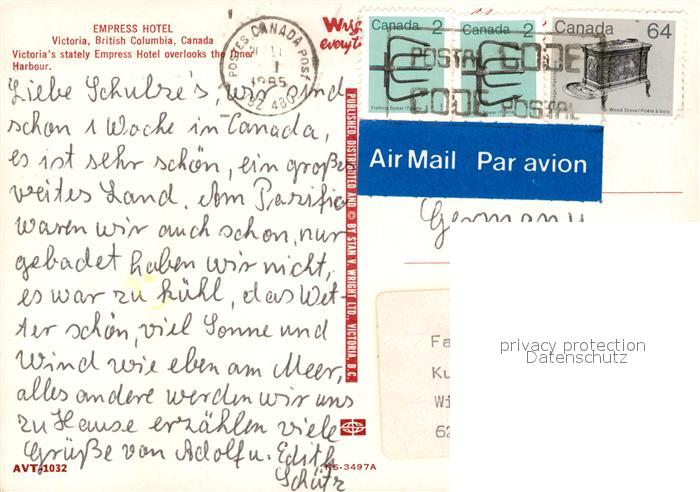 EMPRESS HOTEL
Victoria, British Columbia, Canada
Victoria's stately Empress Hotel overlooks the Inner
Harbour.
Liebe Schulze's, wir sind
schon 1 Woche in Canada,
es ist sehr schön, ein großes
weites Land. Am Pazific
waren wir auch schon, nur
gebadet haben wir nicht,
es war zu kühl, das Wet-
ter schön, viel Sonne und
Wind wie eben am Meer,
alles andere werden wir uns
zu Hause erzählen viele
Grüße von Adolf u. Edith
Schütz
AVT-1032
KS-3497A
PUBLISHED, DISTRIBUTED AND © BY STAN V. WRIGHT LTD., VICTORIA, B.C.
POSTES CANADA POST
1985
Canada 2
Fishing Spear
Canada 2
Fishing Spear
64
Wood Stove / Poêle à bois
POSTAL CODE
CODE POSTAL
Air Mail Par avion
Germany
Fa
Ku
Wi
62
privacy protection
Datenschutz